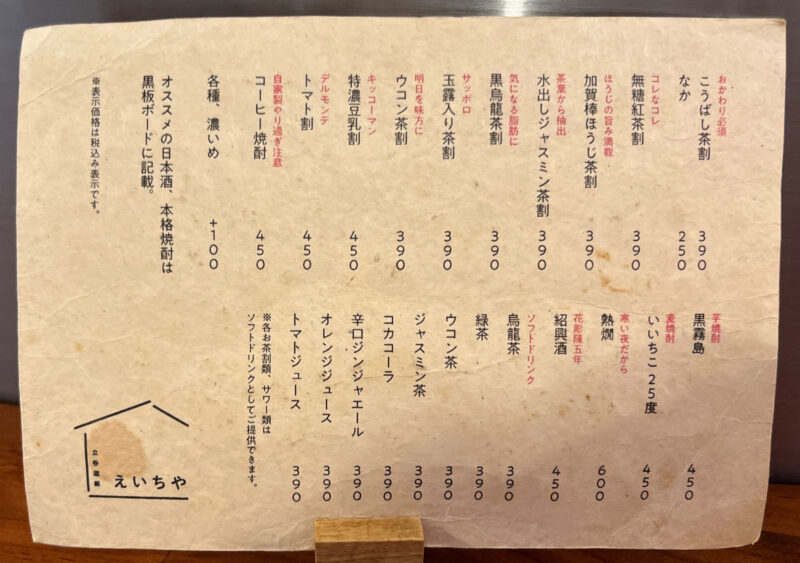 おかわり必須
こうばし茶割 390
なか 250
コレなコレ
無糖紅茶割 390
ほうじの旨み満載
加賀棒ほうじ茶割 390
茶葉から抽出
水出しジャスミン茶割 390
気になる脂肪に
黒烏龍茶割 390
サッポロ
玉露入り茶割 390
明日を味方に
ウコン茶割 390
キッコーマン
特濃豆乳割 450
デルモンテ
トマト割 450
自家製やり過ぎ注意
コーヒー焼酎 450
各種、濃いめ +100
オススメの日本酒、本格焼酎は
黒板ボードに記載。
※表示価格は税込み表示です。
芋焼酎
黒霧島 450
麦焼酎
いいちこ 25度 450
寒い夜だから
熱燗 600
花彫陳五年
紹興酒 450
ソフトドリンク
烏龍茶 390
緑茶 390
ウコン茶 390
ジャスミン茶 390
コカコーラ 390
辛口ジンジャエール 390
オレンジジュース 390
トマトジュース 390
※各お茶割類、サワー類は
ソフトドリンクとしてご提供できます。
えいちや